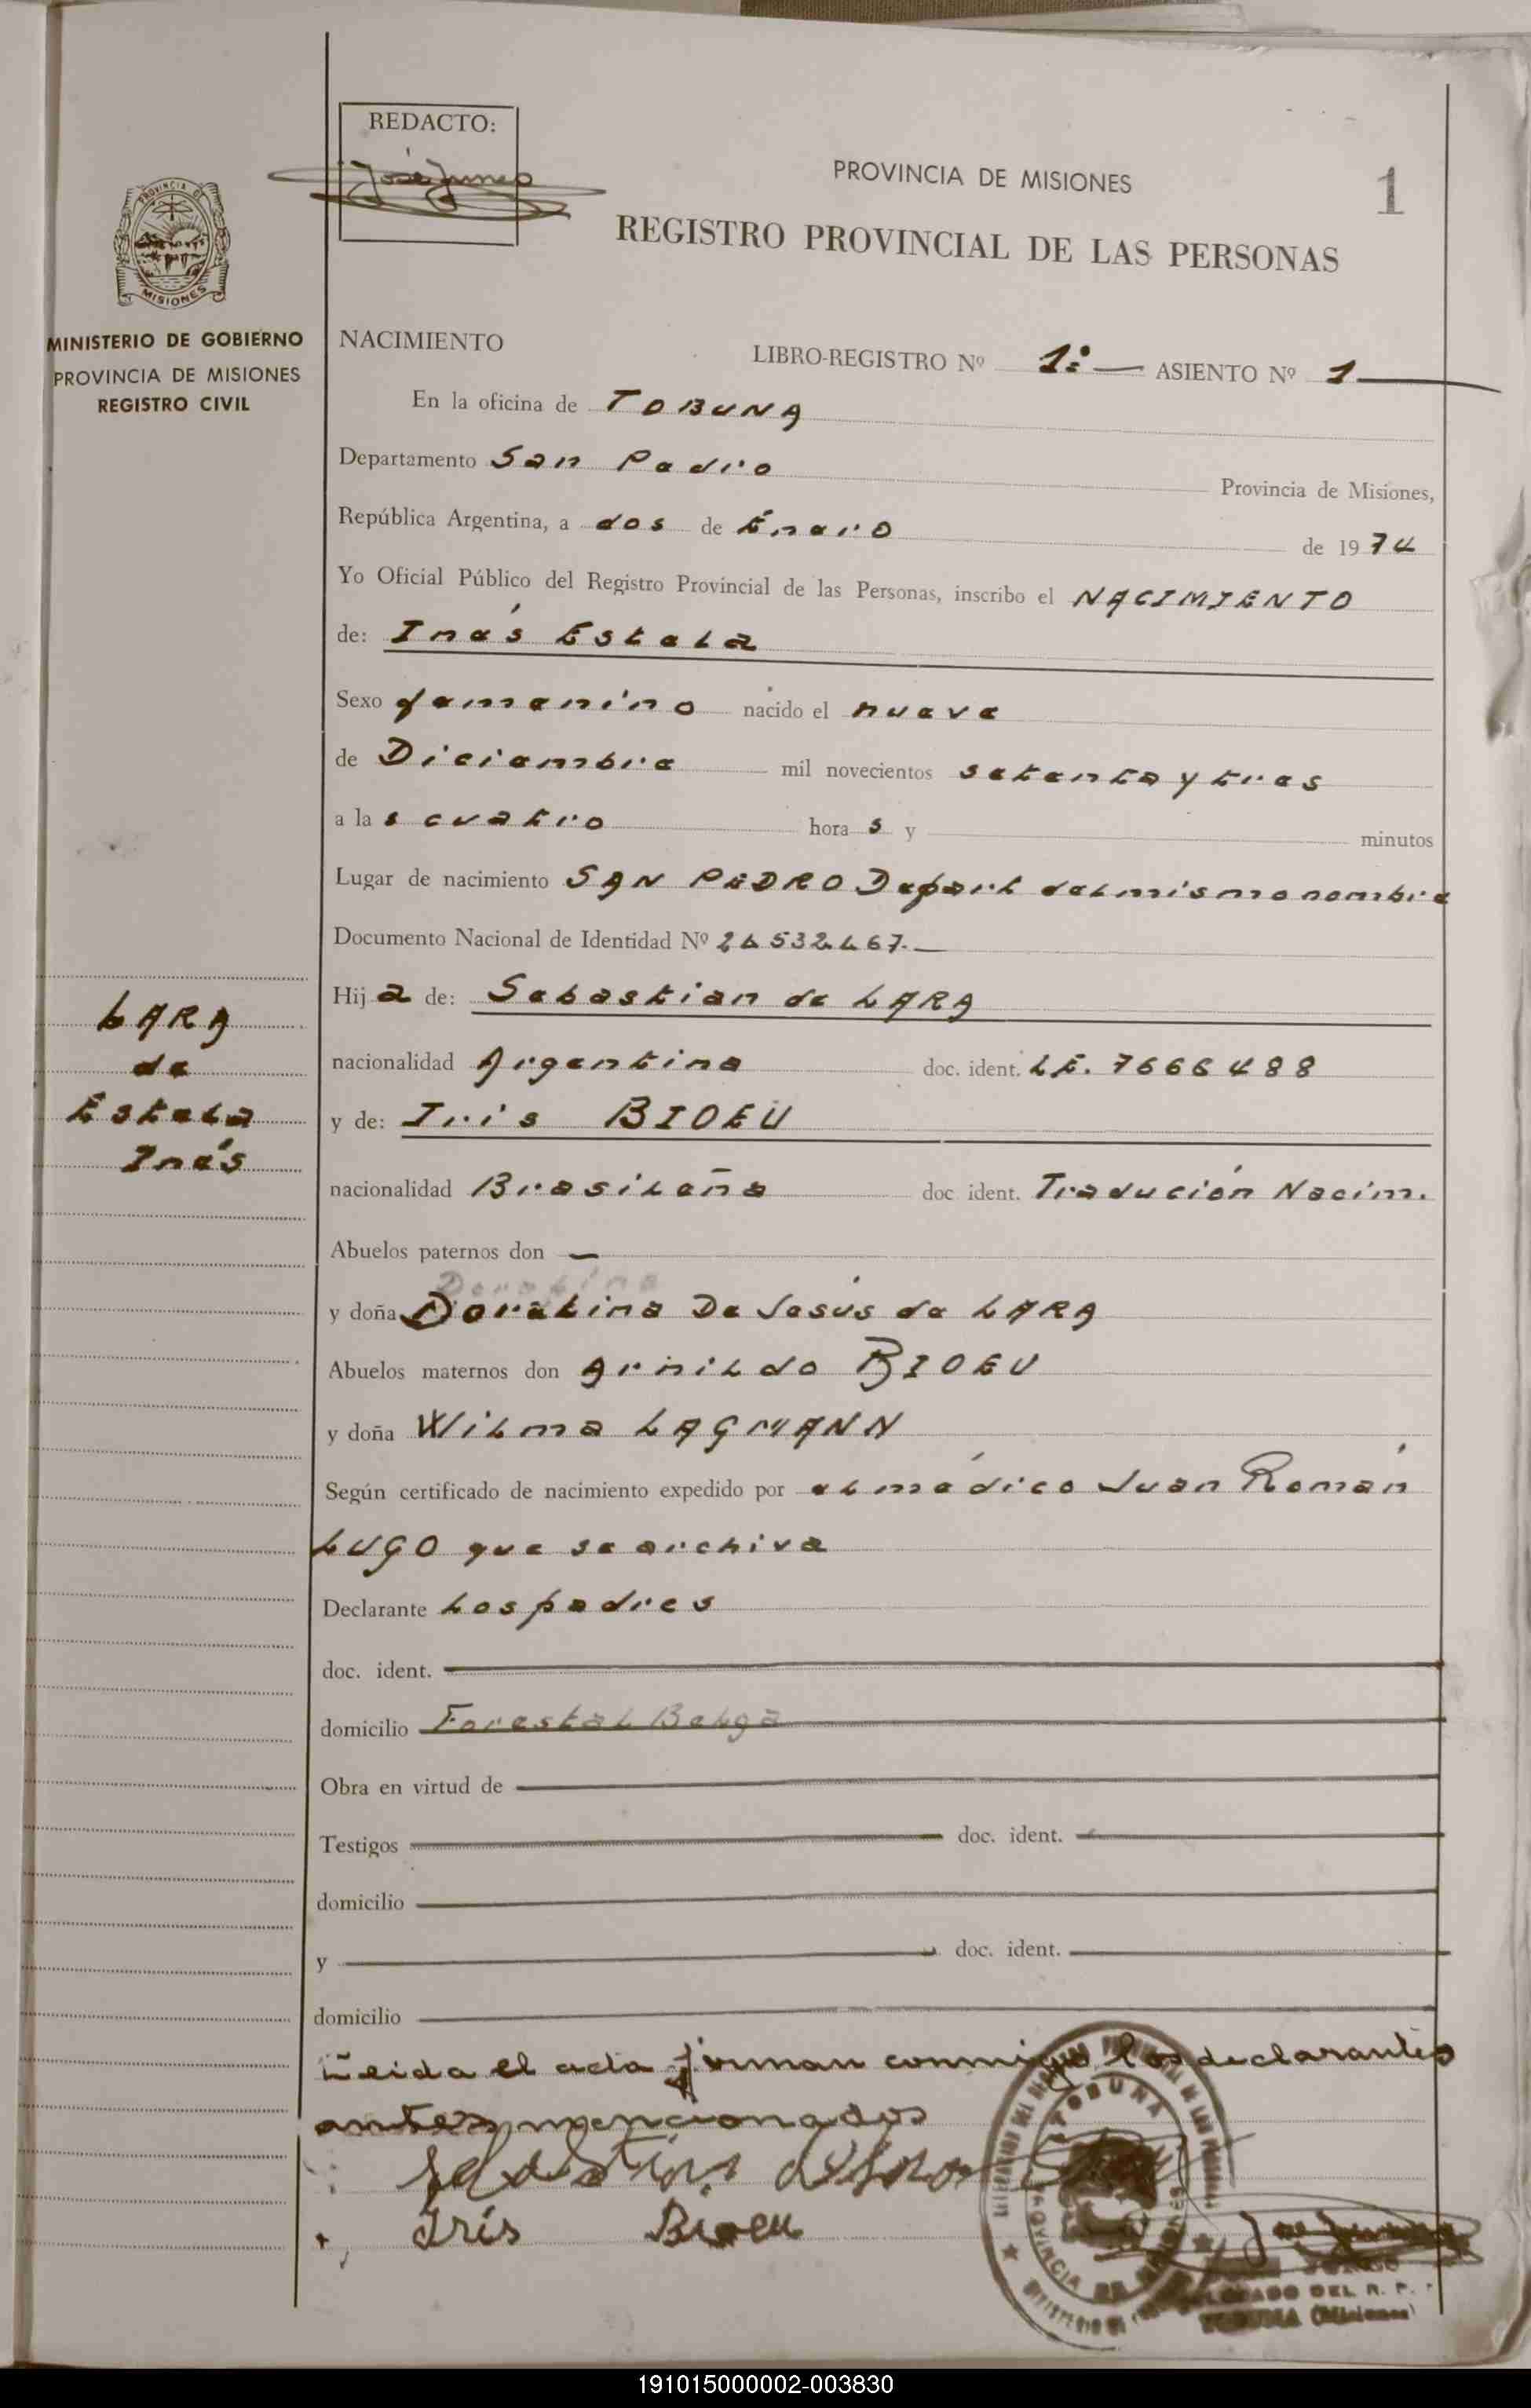 REDACTO:
PROVINCIA DE MISIONES
1
REGISTRO PROVINCIAL DE LAS PERSONAS
PROVINCIA DE
MISIONES
MINISTERIO DE GOBIERNO
PROVINCIA DE MISIONES
REGISTRO CIVIL
NACIMIENTO
LIBRO-REGISTRO Nº 1º — ASIENTO Nº 1
En la oficina de TOBUNA
Departamento San Pedro Provincia de Misiones,
República Argentina, a dos de Enero de 1974
Yo Oficial Público del Registro Provincial de las Personas, inscribo el NACIMIENTO
de: Inés Estela
Sexo femenino nacido el nueve
de Diciembre mil novecientos setenta y tres
a las cuatro horas y minutos
Lugar de nacimiento SAN PEDRO Depart del mismo nombre
Documento Nacional de Identidad Nº
Hija de: Sebastian de LARA
nacionalidad Argentina doc. ident. LE. 7666488
y de: Iris BIOEU
nacionalidad Brasileña doc ident. Tradución Nacim.
Abuelos paternos don —
Doratina
y doña Doratina De Jesús de LARA
Abuelos maternos don Arnildo BIOEU
y doña Wilma LAGMANN
Según certificado de nacimiento expedido por el médico Juan Román
LUGO que se archiva
Declarante Los padres
doc. ident.
domicilio Forestal Belga
Obra en virtud de
Testigos doc. ident.
domicilio
y doc. ident.
domicilio
Leida el acta firman conmigo los declarantes
antes mencionados
Iris Bioeu
LARA
de
Estela
Inés
TOBUNA
PROVINCIA DE MISIONES
DEL R. P.
(Misiones)
191015000002-003830